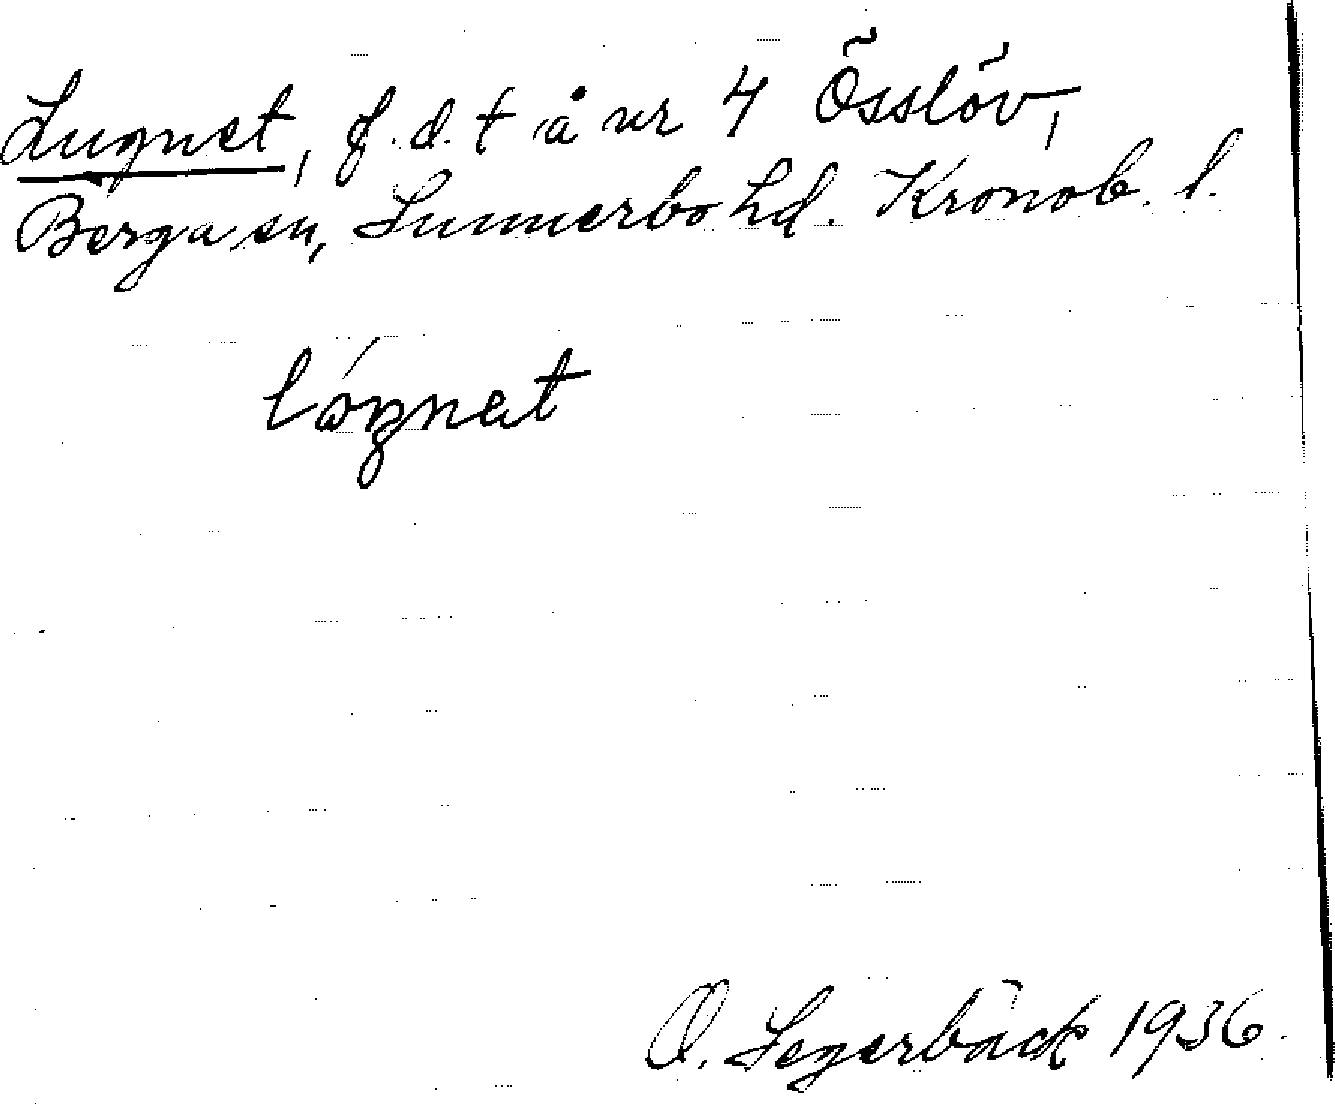 Lugnet, f.d. t å nr 4 Össlöv,
Berga sn, Sunnerbo hd. Kronob. l.
lógnet
O. Segerbäck 1936.